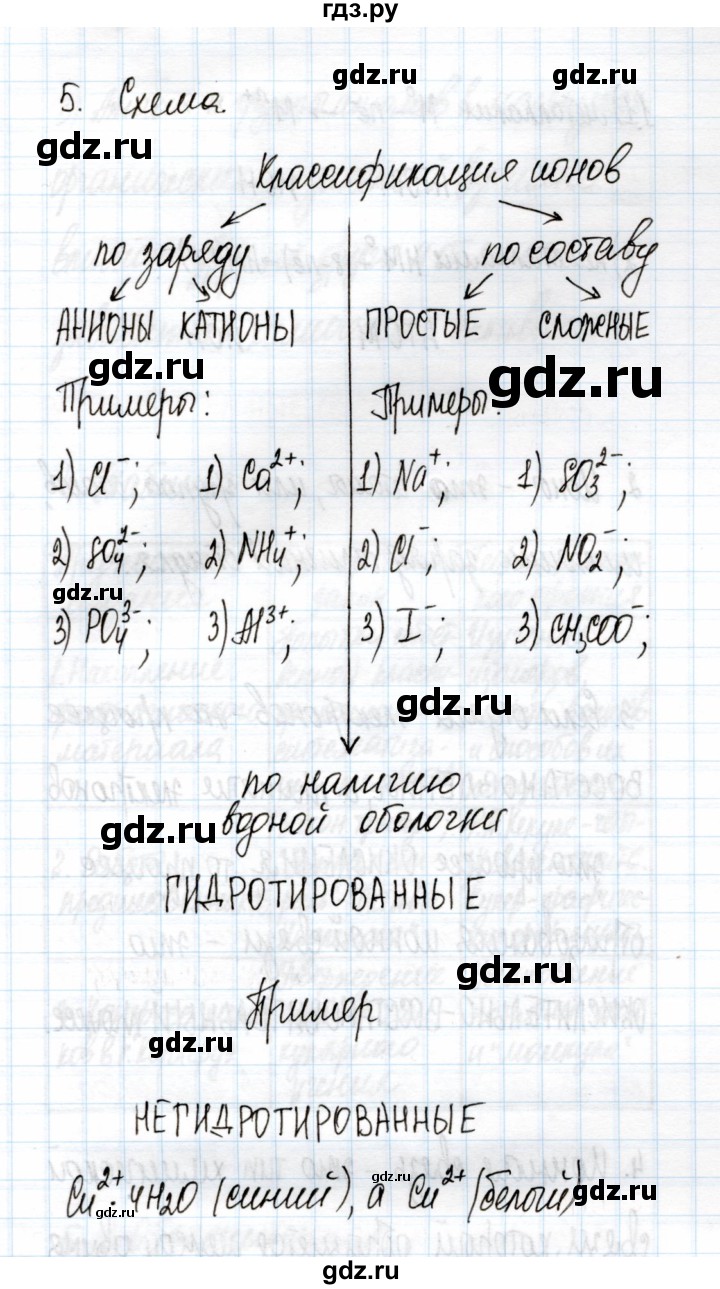 гдз.ру
gdz.ru
5. Схема
gdz.ru
Классификация ионов
gdz.ru
по заряду по составу
gdz.ru
АНИОНЫ КАТИОНЫ ПРОСТЫЕ СЛОЖНЫЕ
gdz.ru
gdz.ru
Примеры: Примеры:
1) Cl⁻; 1) Ca²⁺; 1) Na⁺; 1) SO₃²⁻;
gdz.ru
2) SO₄²⁻; 2) NH₄⁺; 2) Cl⁻; 2) NO₂⁻;
gdz.ru
3) PO₄³⁻; 3) Al³⁺; 3) I⁻; 3) CH₃COO⁻;
gdz.ru
по наличию
водной оболочки
gdz.ru
ГИДРОТИРОВАННЫЕ
gdz.ru
Пример
gdz.ru
НЕГИДРОТИРОВАННЫЕ
gdz.ru
Cu²⁺·4H2O (синий), а Cu²⁺ (белый)
gdz.ru
gdz.ru